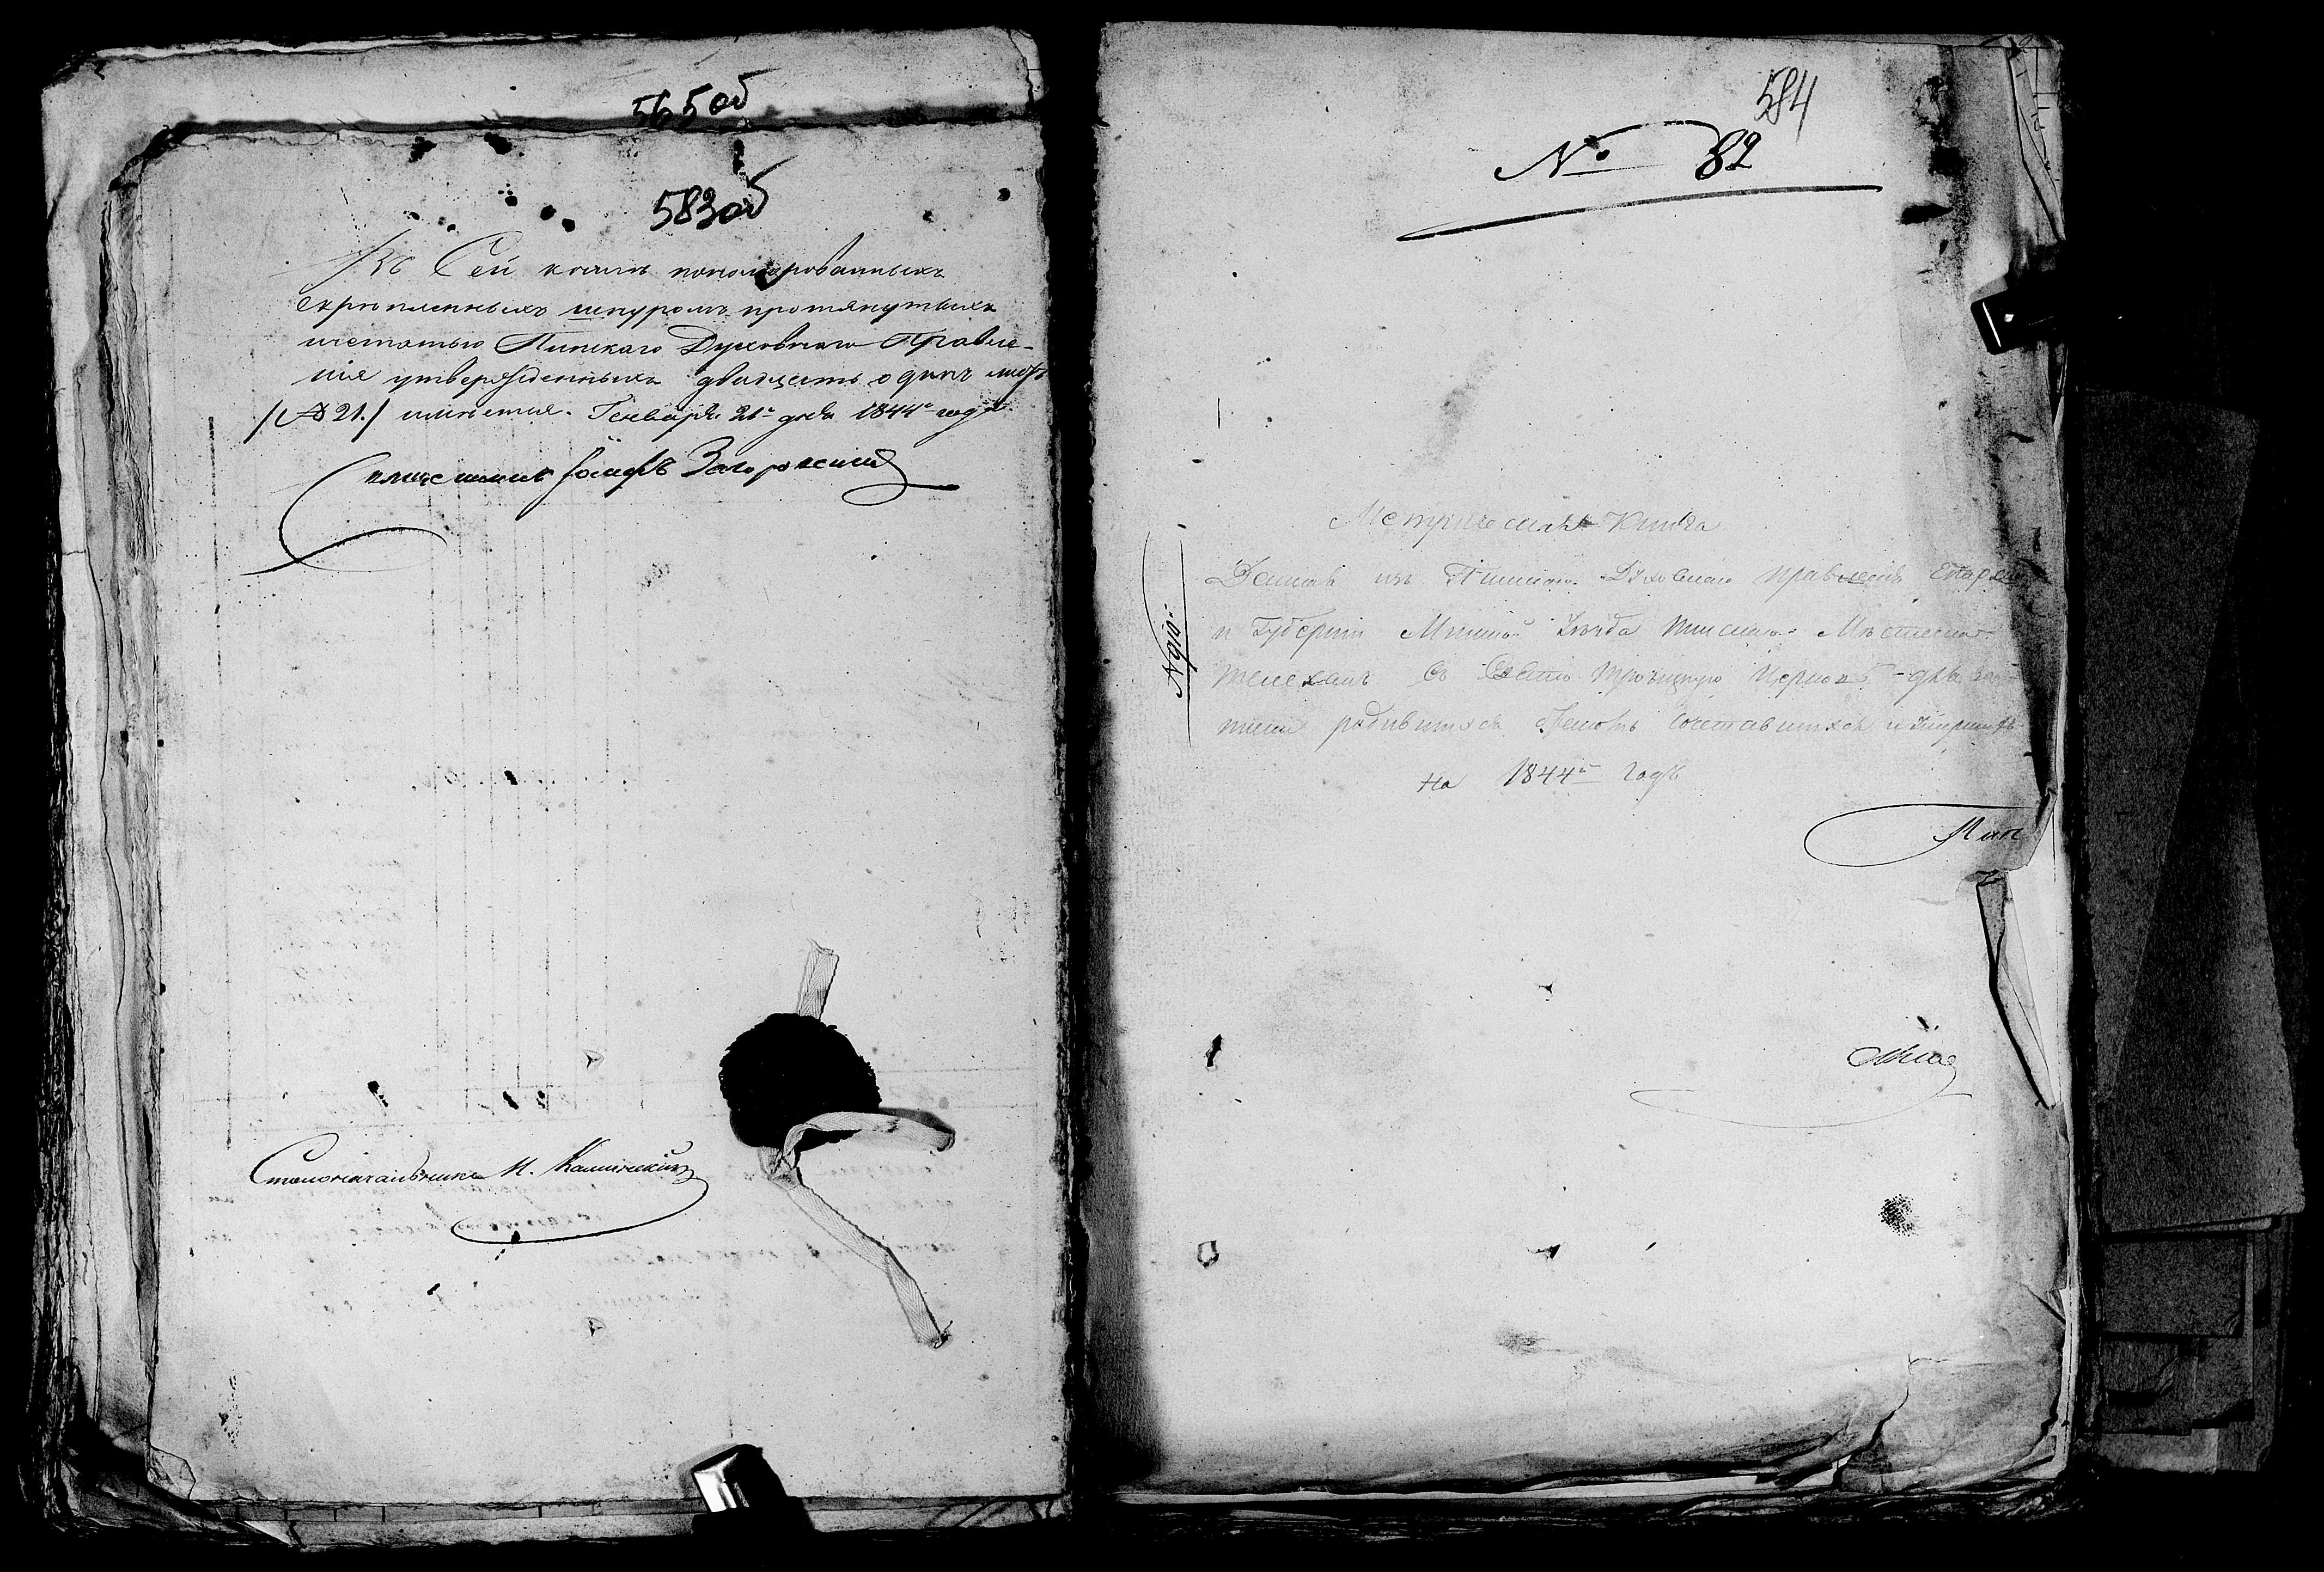 565 об
583 об
Въ Сей книги пономированныхъ
скрѣпленныхъ шнуромъ протянутыхъ
печатью Пинскаго Духовнаго Правле-
нія утвержденныхъ двадцать одинъ листъ
/№ 21./ имѣется. Генваря 21го дня 1844го года
Іосифъ
Столоначальникъ И.
584
№ 82
Метрическая Книга
Данная изъ Пинскаго Духовнаго Правленія Епархіи
и Губерніи Минской Уѣзда Пинскаго Мѣстечка
Телеханъ въ Свято Троицкую Церковь для за-
писки родившихся бракомъ сочетавшихся и умершихъ
на 1844й годъ
Пин